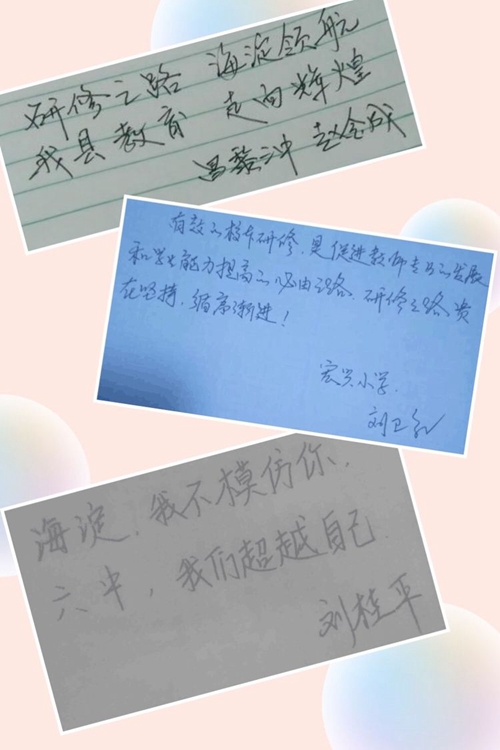 研修之路 海淀领航
我县教育 走向辉煌
昌黎三中 赵金成
有效的校本研修，是促进教师专业的发展
和学生能力提高的必由之路，研修之路贵
在坚持，循序渐进！
宏兴小学
刘卫红
海淀，我不模仿你，
六中，我们超越自己
刘桂平